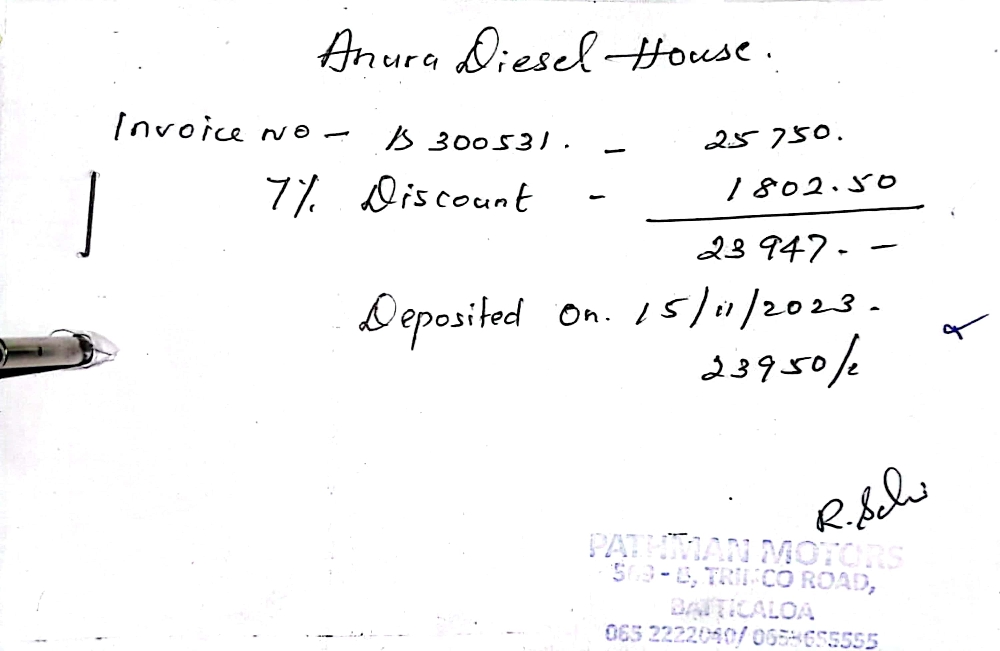 Anura Diesel House.
Invoice No - B 300531. - 25 750.
7% Discount - 1802.50
23 947. -
Deposited on. 15/11/2023.
23950/=
R.
PATHMAN MOTORS
TRINCO ROAD,
BATTICALOA
065 2222040/